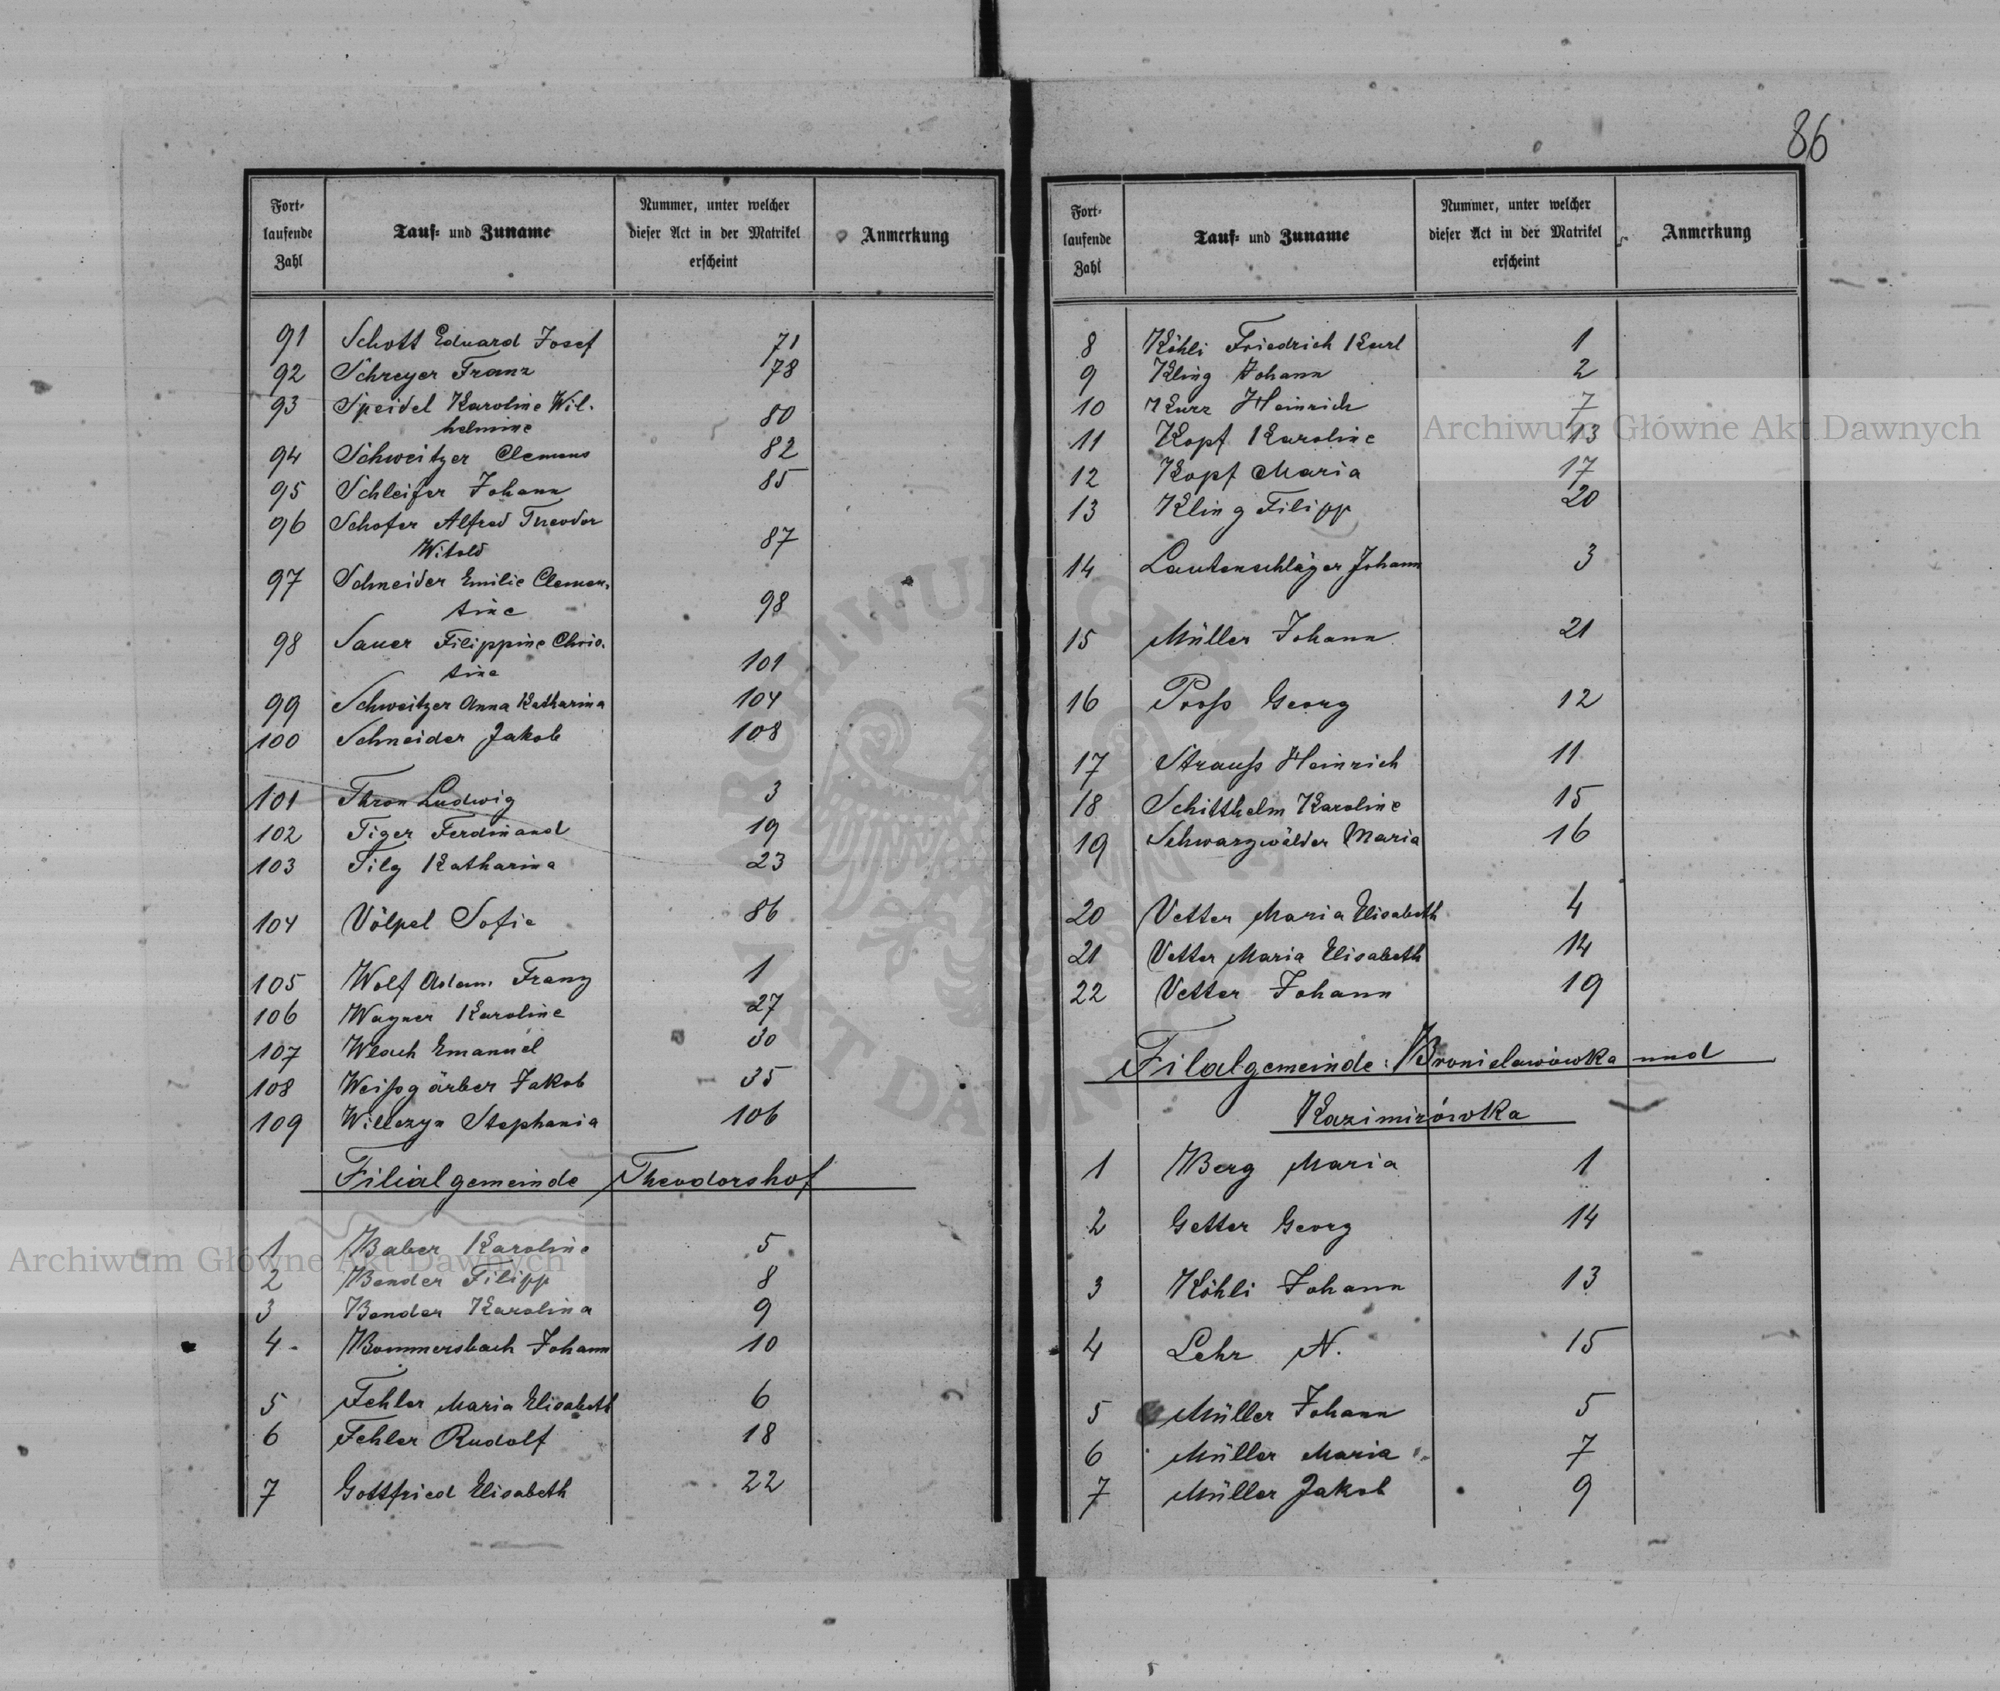 86
Fort-
laufende
Zahl
Tauf- und Zuname
Nummer, unter welcher
dieser Act in der Matrikel
erscheint
Anmerkung
91 Schott Eduard Josef 71
92 Schreyer Franz 78
93 Speidel Karoline Wil-
helmine 80
94 Schweitzer Clemens 82
95 Schleifer Johann 85
96 Schofer Alfred Theodor
Witold 87
97 Schneider Emilie Clemen-
tine 98
98 Sauer Filippine Chris-
tine 101
99 Schweitzer Anna Katharina 104
100 Schneider Jakob 108
101 Thron Ludwig 3
102 Tiger Ferdinand 19
103 Tilg Katharina 23
104 Völpel Sofie 86
105 Wolf Adam Franz 1
106 Wagner Karoline 27
107 Wlach Emanuel 30
108 Weißgärber Jakob 35
109 Willczyn Stephania 106
Filialgemeinde Theodorshof
1 Baber Karoline 5
2 Bender Filipp 8
3 Bender Karolina 9
4 Bommersbach Johann 10
5 Fehler Maria Elisabeth 6
6 Fehler Rudolf 18
7 Gottfried Elisabeth 22
Fort-
laufende
Zahl
Tauf- und Zuname
Nummer, unter welcher
dieser Act in der Matrikel
erscheint
Anmerkung
8 Köhli Friedrich Karl 1
9 Kling Johann 2
10 Kurz Heinrich 7
11 Kopf Karoline 13
12 Kopf Maria 17
13 Kling Filipp 20
14 Lautenschläger Johann 3
15 Müller Johann 21
16 Proß Georg 12
17 Strauß Heinrich 11
18 Schitthelm Karoline 15
19 Schwarzwälder Maria 16
20 Vetter Maria Elisabeth 4
21 Vetter Maria Elisabeth 14
22 Vetter Johann 19
Filalgemeinde: Bronislawówka und
Kazimirówka
1 Berg Maria 1
2 Getter Georg 14
3 Köhli Johann 13
4 Lehr N. 15
5 Müller Johann 5
6 Müller Maria 7
7 Müller Jakob 9
Archiwum Główne Akt Dawnych
Archiwum Główne Akt Dawnych
ARCHIWUM GŁÓWNE AKT DAWNYCH